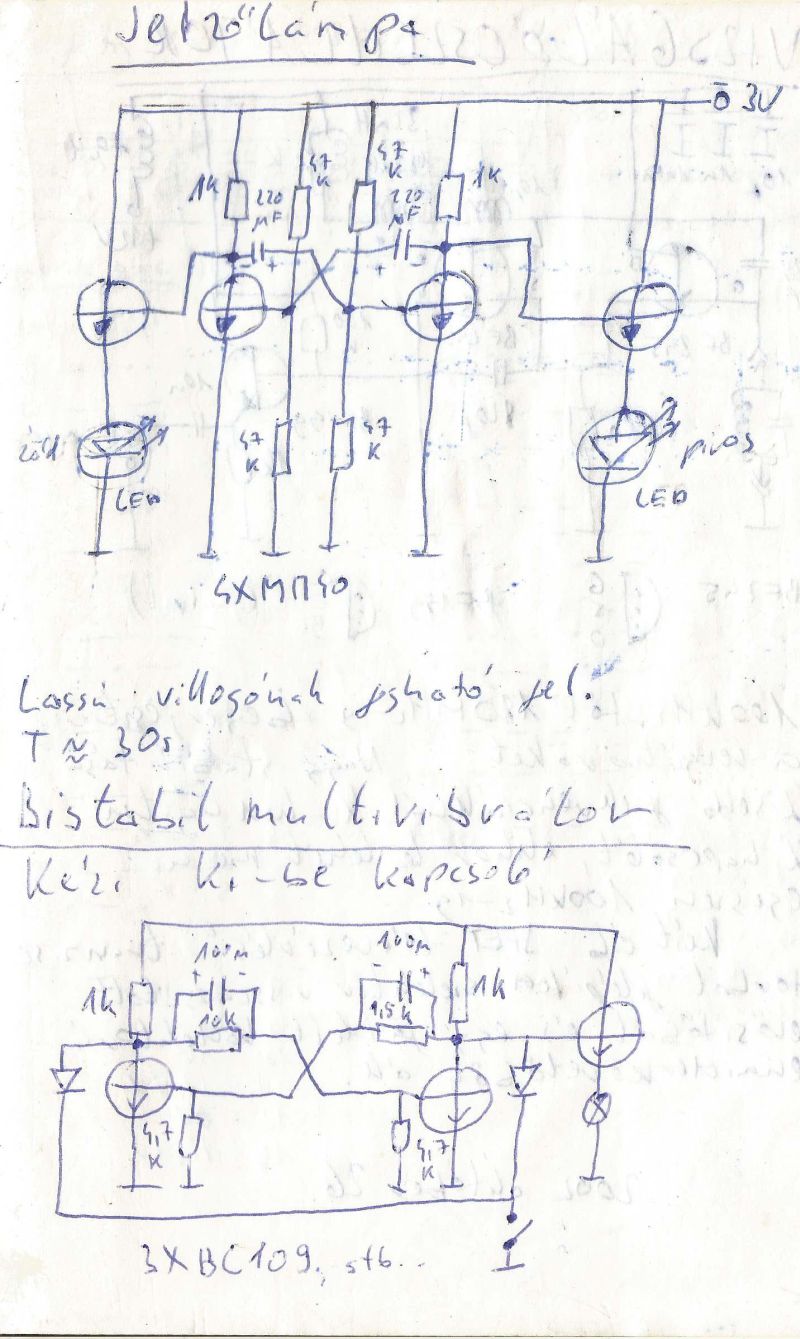 Jelzőlámpa
ō 3V
1k
220 μF
47 k
47 k
220 μF
1k
zöld
LED
47 k
47 k
piros
LED
4XМП40
Lassú villogónak fel.
T ≈ 30s
Bistabil multivibrátor
Kézi ki-be kapcsoló
100μ
100μ
1k
+ -
- +
1k
10k
1,5k
4,7 k
4,7 k
3XBC109, stb...